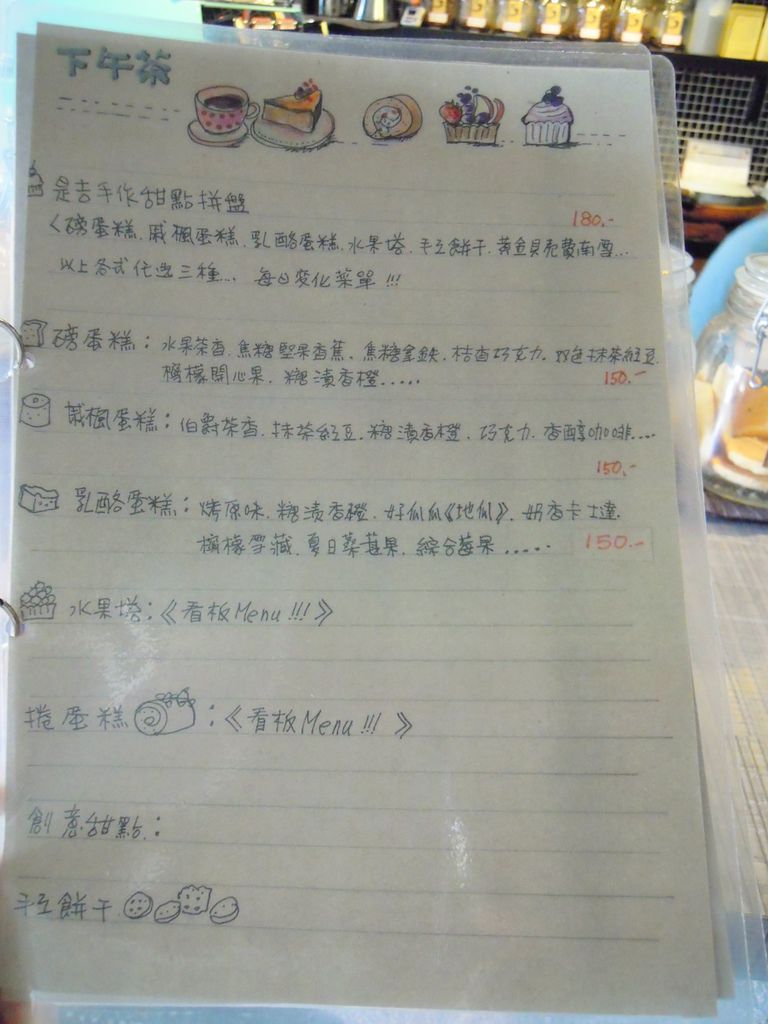 下午茶
是吉手作甜點拼盤 180.-
<磅蛋糕.戚楓蛋糕.乳酪蛋糕.水果塔.手工餅干.黃金貝殼費南雪...
以上各式任選三種.... 每日變化菜單!!!
磅蛋糕：水果茶香.焦糖堅果香蕉.焦糖拿鐵.桔香巧克力.雙色抹茶紅豆
檸檬開心果.糖漬香橙..... 150.-
戚楓蛋糕：伯爵茶香.抹茶紅豆.糖漬香橙.巧克力.香醇咖啡....
150.-
乳酪蛋糕：烤原味.糖漬香橙.好瓜瓜《地瓜》.奶香卡士達.
檸檬雪藏.夏日藥莓果.綜合莓果..... 150.-
水果塔：《看板Menu!!!》
捲蛋糕：《看板Menu!!!》
創意甜點：
手工餅干